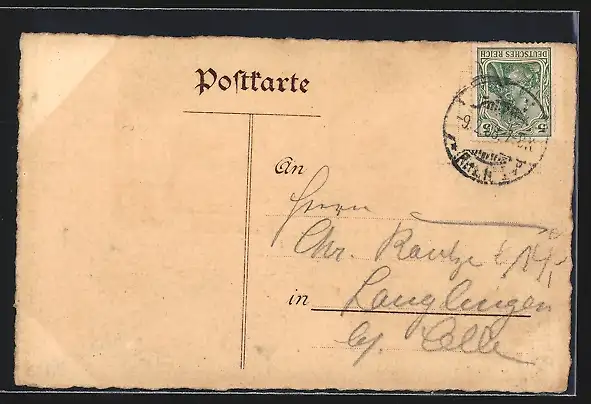 Postkarte
DEUTSCHES REICH
5 5
An
Herrn
Chr.
in Langlingen
by. Celle